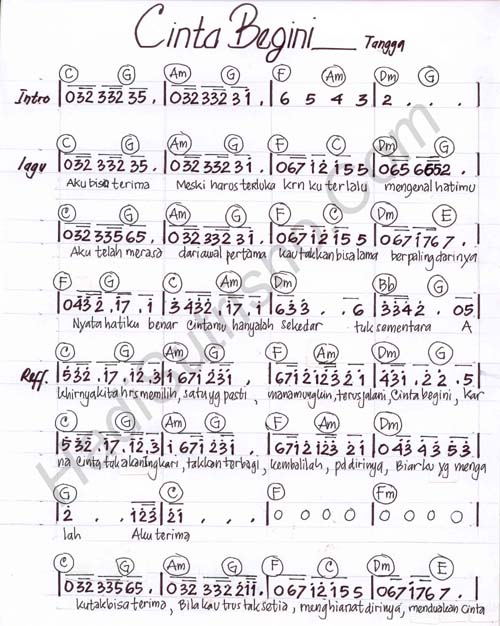 Cinta Begini___ Tangga
C G Am G F Am Dm G
Intro |032 332 35 . |032 332 31 . |6 5 4 3 |2 . . .
C G Am G F C Dm G
lagu |032 332 35 . |032 332 31 . |067 12 15 5 |065 6552 .
Aku bisa terima Meski harus terluka krn ku terlalu mengenal hatimu
C G Am G F C Dm E
|032 335 65 . |032 332 31 . |067 12 15 5 |067 176 7 .
Aku telah merasa dari awal pertama kau takkan bisa lama berpaling darinya
F G C Am Dm Bb G
|0432 . 17 . 1 |3 432 . 17 . 1 |633 . . 6 |3342 . 05|
Nyata hatiku benar Cintamu hanyalah sekedar tuk sementara A
C G Am G F Am Dm G
Reff. |532 . 17 . 12 . 3 |1 671 231 , |671 2123 21 |431 . 2 2 . 5|
khirnya kita hrs memilih, satu yg pasti , mana mungkin, terus jalani, Cinta begini , Kar
C G Am G F Am Dm G
|532 . 17 . 12 . 3 |1 671 231 . |671 2123 21 |0 43 43 53|
na Cinta tak akan ingkari, takkan terbagi , kembalilah, pd dirinya, Biar ku yg menga
G C F Fm
|2 . . 123 |21 . . . |0 0 0 0 |0 0 0 0|
lah Aku terima
C G Am G F C Dm E
|032 335 65 . |032 332 211 . |067 12 15 5 |067 176 7 .
ku tak bisa terima , Bila kau trus tak setia , menghianat dirinya, menduakan cinta
HadiSutrisno.Com